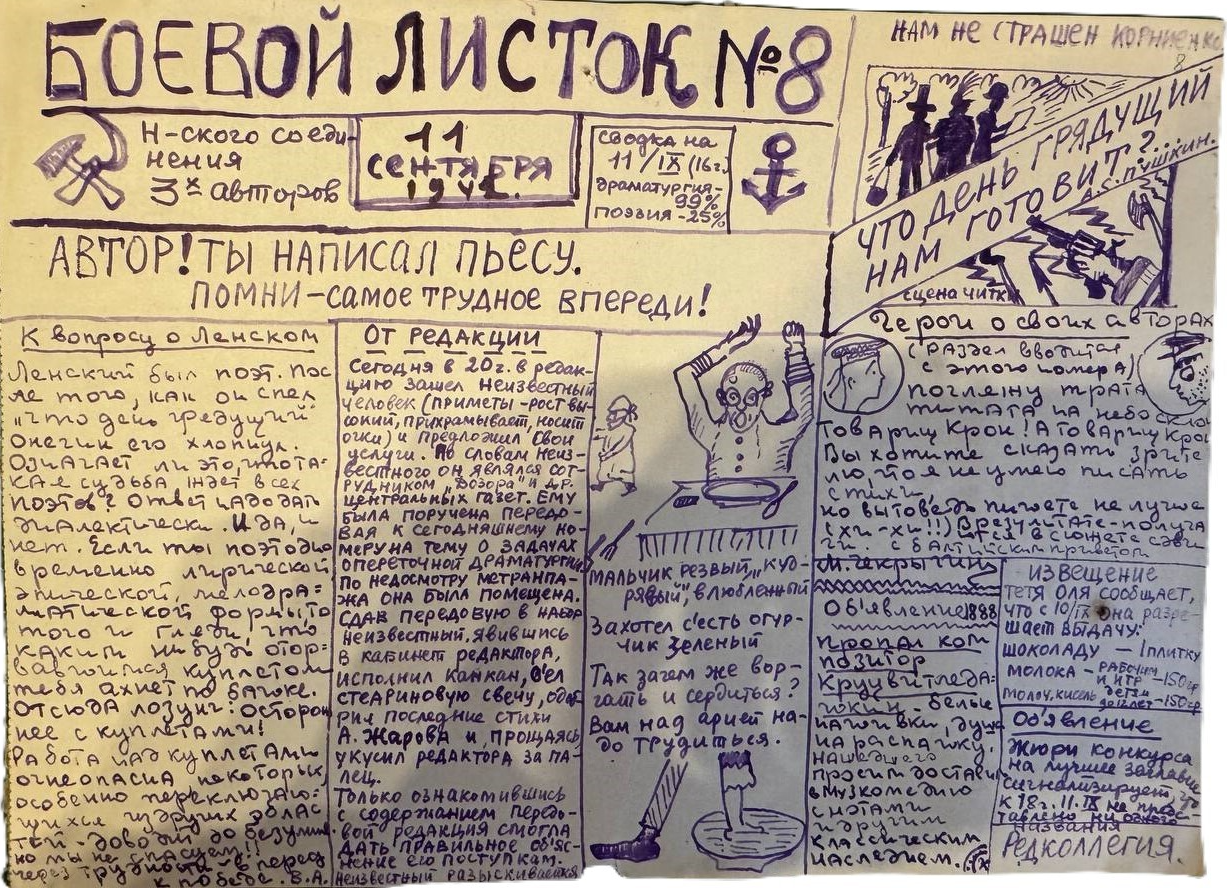 БОЕВОЙ ЛИСТОК №8
Н-ского соеди-
нения
3х авторов
11
СЕНТЯБРЯ
1942.
СВОДКА на
11/IX (16г.)
драматургия-
99%
ПОЭЗИЯ -25%
НАМ НЕ СТРАШЕН КОРНИЕНКО
8
ЧТО ДЕНЬ ГРЯДУЩИЙ
НАМ ГОТОВИТ?...
А.С. ПУШКИН.
сцена читки
АВТОР! ТЫ НАПИСАЛ ПЬЕСУ.
ПОМНИ-САМОЕ ТРУДНОЕ ВПЕРЕДИ!
К вопросу о Ленском
Ленский был поэт. Пос
ле того, как он спел
"что день грядущий"
Онегин его хлопнул.
Означает ли это, что та-
кая судьба ждет всех
поэтов? Ответ надо дать
диалектически. И да, и
нет. Если ты поэт одно
временно лирической
эпической, мелодра-
матической формы, то
того и гляди, что
каким нибудь отор-
вавшимся куплетом
тебя ахнет по башке.
Отсюда лозунг: осторож
нее с куплетами!
Работа над куплетами
огнеопасна некоторых,
особенно переключаю-
щихся из других облас
тей - доводит до безумия
но мы не
через трудности - вперед
к победе. В.А.
ОТ РЕДАКЦИИ
Сегодня в 20 г. в редак-
цию зашел Неизвестный
человек (приметы - рост вы-
сокий, прихрамывает, носит
очки) и предложил свои
услуги. По словам неиз-
вестного он являлся сот-
рудником "Дозора" и др.
центральных газет. ЕМУ
БЫЛА ПОРУЧЕНА ПЕРЕДО-
ВАЯ К СЕГОДНЯШНЕМУ НО-
МЕРУ НА ТЕМУ О ЗАДАЧАХ
ОПЕРЕТОЧНОЙ ДРАМАТУРГИИ
ПО НЕДОСМОТРУ МЕТРАНПА-
ЖА ОНА БЫЛА ПОМЕЩЕНА.
СДАВ ПЕРЕДОВУЮ В НАБОР
НЕИЗВЕСТНЫЙ, ЯВИВШИСЬ
В КАБИНЕТ РЕДАКТОРА,
ИСПОЛНИЛ КАНКАН, С'ЕЛ
СТЕАРИНОВУЮ СВЕЧУ,
последние стихи
А. Жарова и, прощаясь,
укусил редактора за па-
лец.
Только ознакомившись
с содержанием передо-
вой редакция смогла
дать правильное об'яс-
нение его поступкам.
Неизвестный разыскивается
МАЛЬЧИК РЕЗВЫЙ, КУД-
РЯВЫЙ, ВЛЮБЛЕННЫЙ
Захотел с'есть огур-
чик зеленый
Так зачем же вор-
чать и сердиться?
Вам над арией на-
до трудиться.
Герои о своих авторах
(РАЗДЕЛ вводится
с этого номера)
погляжу трата
титата на небо склон
Товарищ Крон! А товарищ Крон
Вы хотите сказать зрите
лю, что я не умею писать
стихи,
но вы то ведь пишете не лучше
(хи-хи!!) В результате - получа
ется в сюжете сдви
ги с балтийским приветом
М. Чекрыгин
Об'явление 1888
пропал ком
позитор
Круц витледа-
ужкин - белые
ноговки, душа
нараспашку.
нашедшего
просим доставить
в Музкомедию
с нотами
и другим
классическим
наследием.
ИЗВЕЩЕНИЕ
ТЕТЯ ОЛЯ СООБЩАЕТ,
ЧТО С 10/IX она разре-
шает ВЫДАЧУ:
ШОКОЛАДУ - 1 плитку
МОЛОКА - РАБОЧИМ
и ИТР - 150 гр
Молоч. кисель дети
до 12 лет - 150 гр.
Об'явление
Жюри конкурса
на лучшее заглавие
сигнализирует, что
к 18 г. 11.IX не пред-
ставлено ни одного
названия
РЕДКОЛЛЕГИЯ.